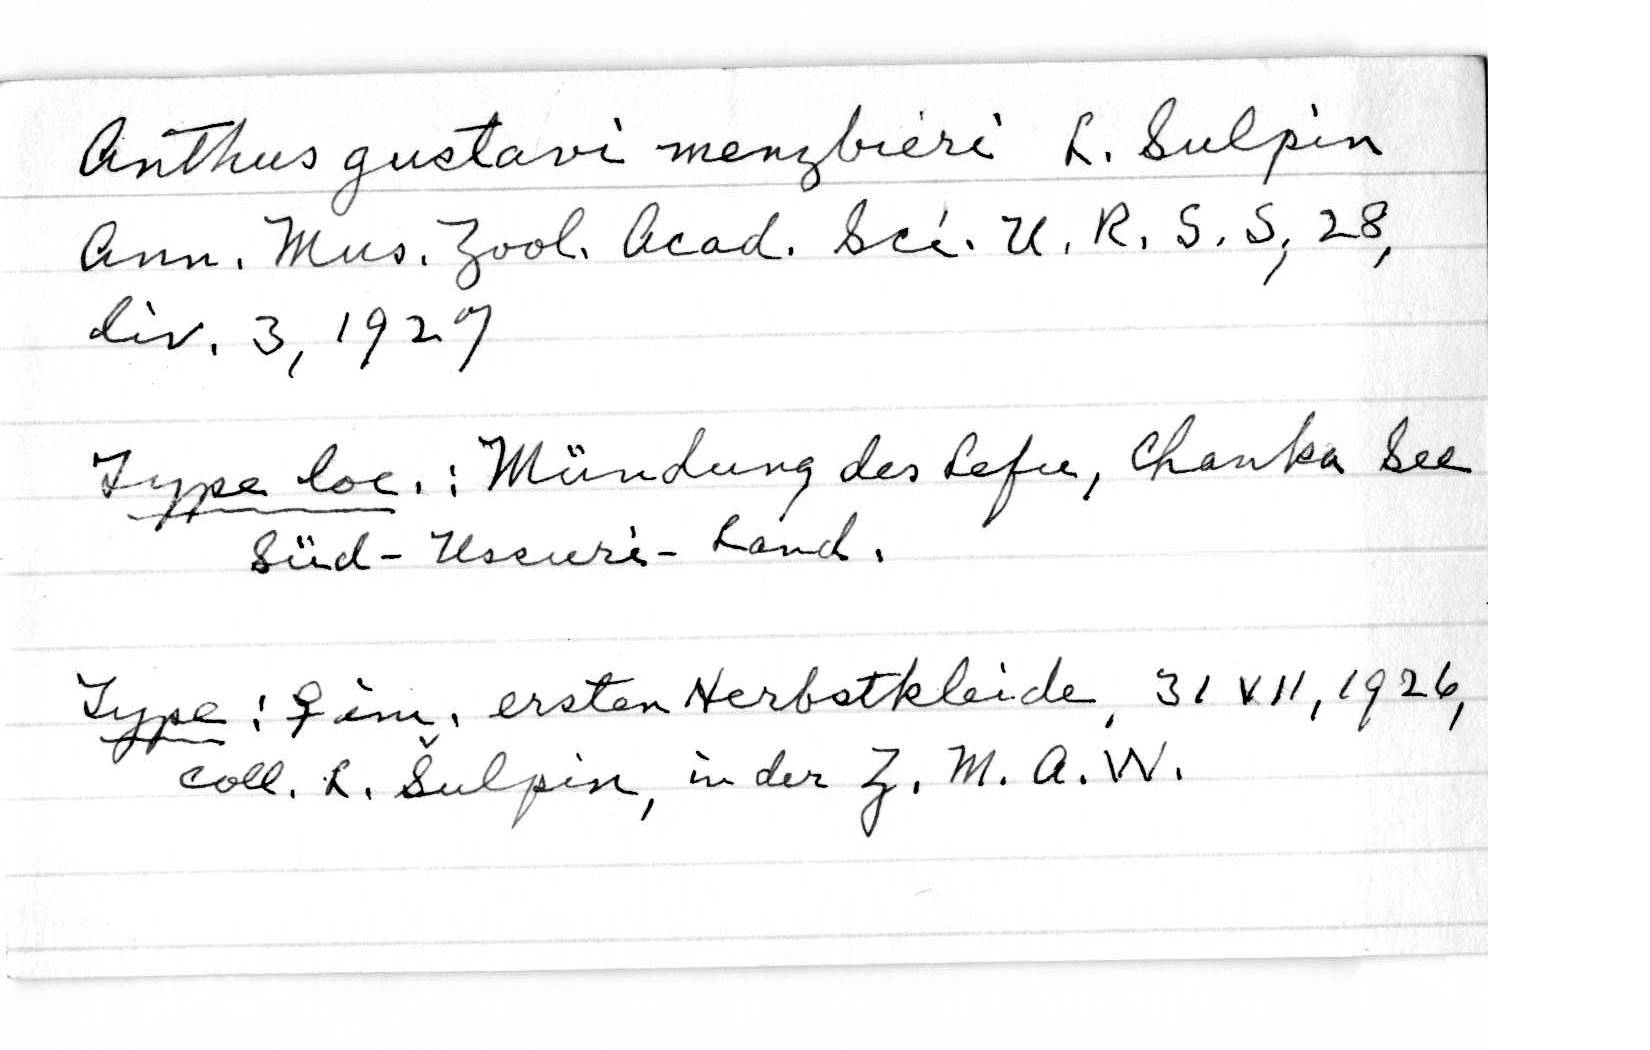 Anthus gustavi menzbieri L. Sulpin
Ann. Mus. Zool. Acad. Sci. U.R.S.S, 28,
liv. 3, 1927
Type loc.: Mündung des Lefu, Chanka See
Süd-Ussuri-Land.
Type: ♀ im. ersten Herbstkleide, 31 VII, 1926,
coll. L. Šulpin, in der Z. M. A. W.